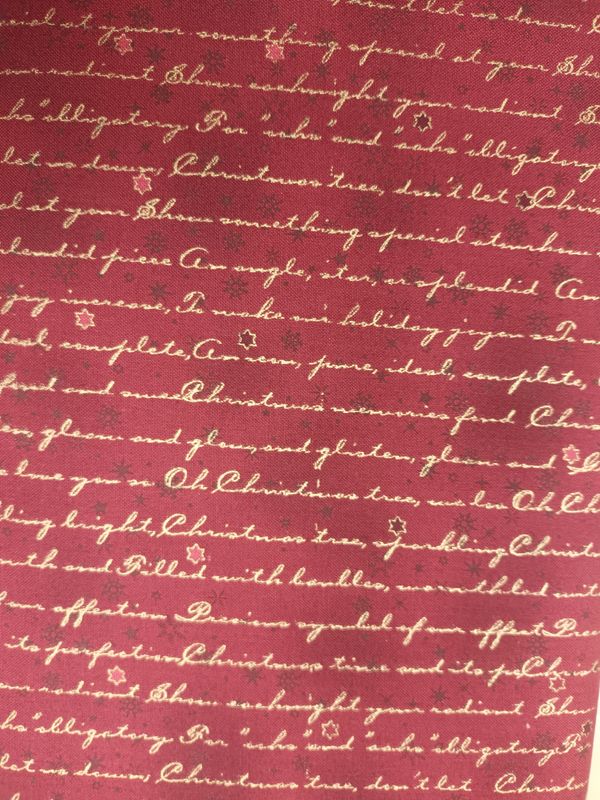 let us down,
ial at your something special at your Sho
our radiant Show each night your radiant S
hs" obligatory For "oohs" and "aahs" obligatory
let us down, Christmas tree, don't let Chris
al at your Show something special at
splendid piece An angle, star, or splendid An
joy increase, To make our holiday joy To m
deal, complete, An icon, pure, ideal, complete,
fond and sweet Christmas memories fond Chris
en, gleam and glow, and glisten, gleam and
love you so Oh Christmas tree, we love Oh Ch
ling bright, Christmas tree, sparkling Christ
mth and Filled with baubles, warmth wit
our affection Precious symbol of our affect Prec
its perfection, Christmas time and its pe Christ
our radiant Show each night your radiant Sho
hs" obligatory For "oohs" and "aahs" obligatory Fo
let us down, Christmas tree, don't let Christm